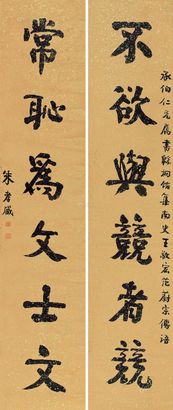 承伯仁兄属书録拘储集南史王敬宏范蔚宗傳語
不欲與競者競
常恥爲文士文
朱孝臧